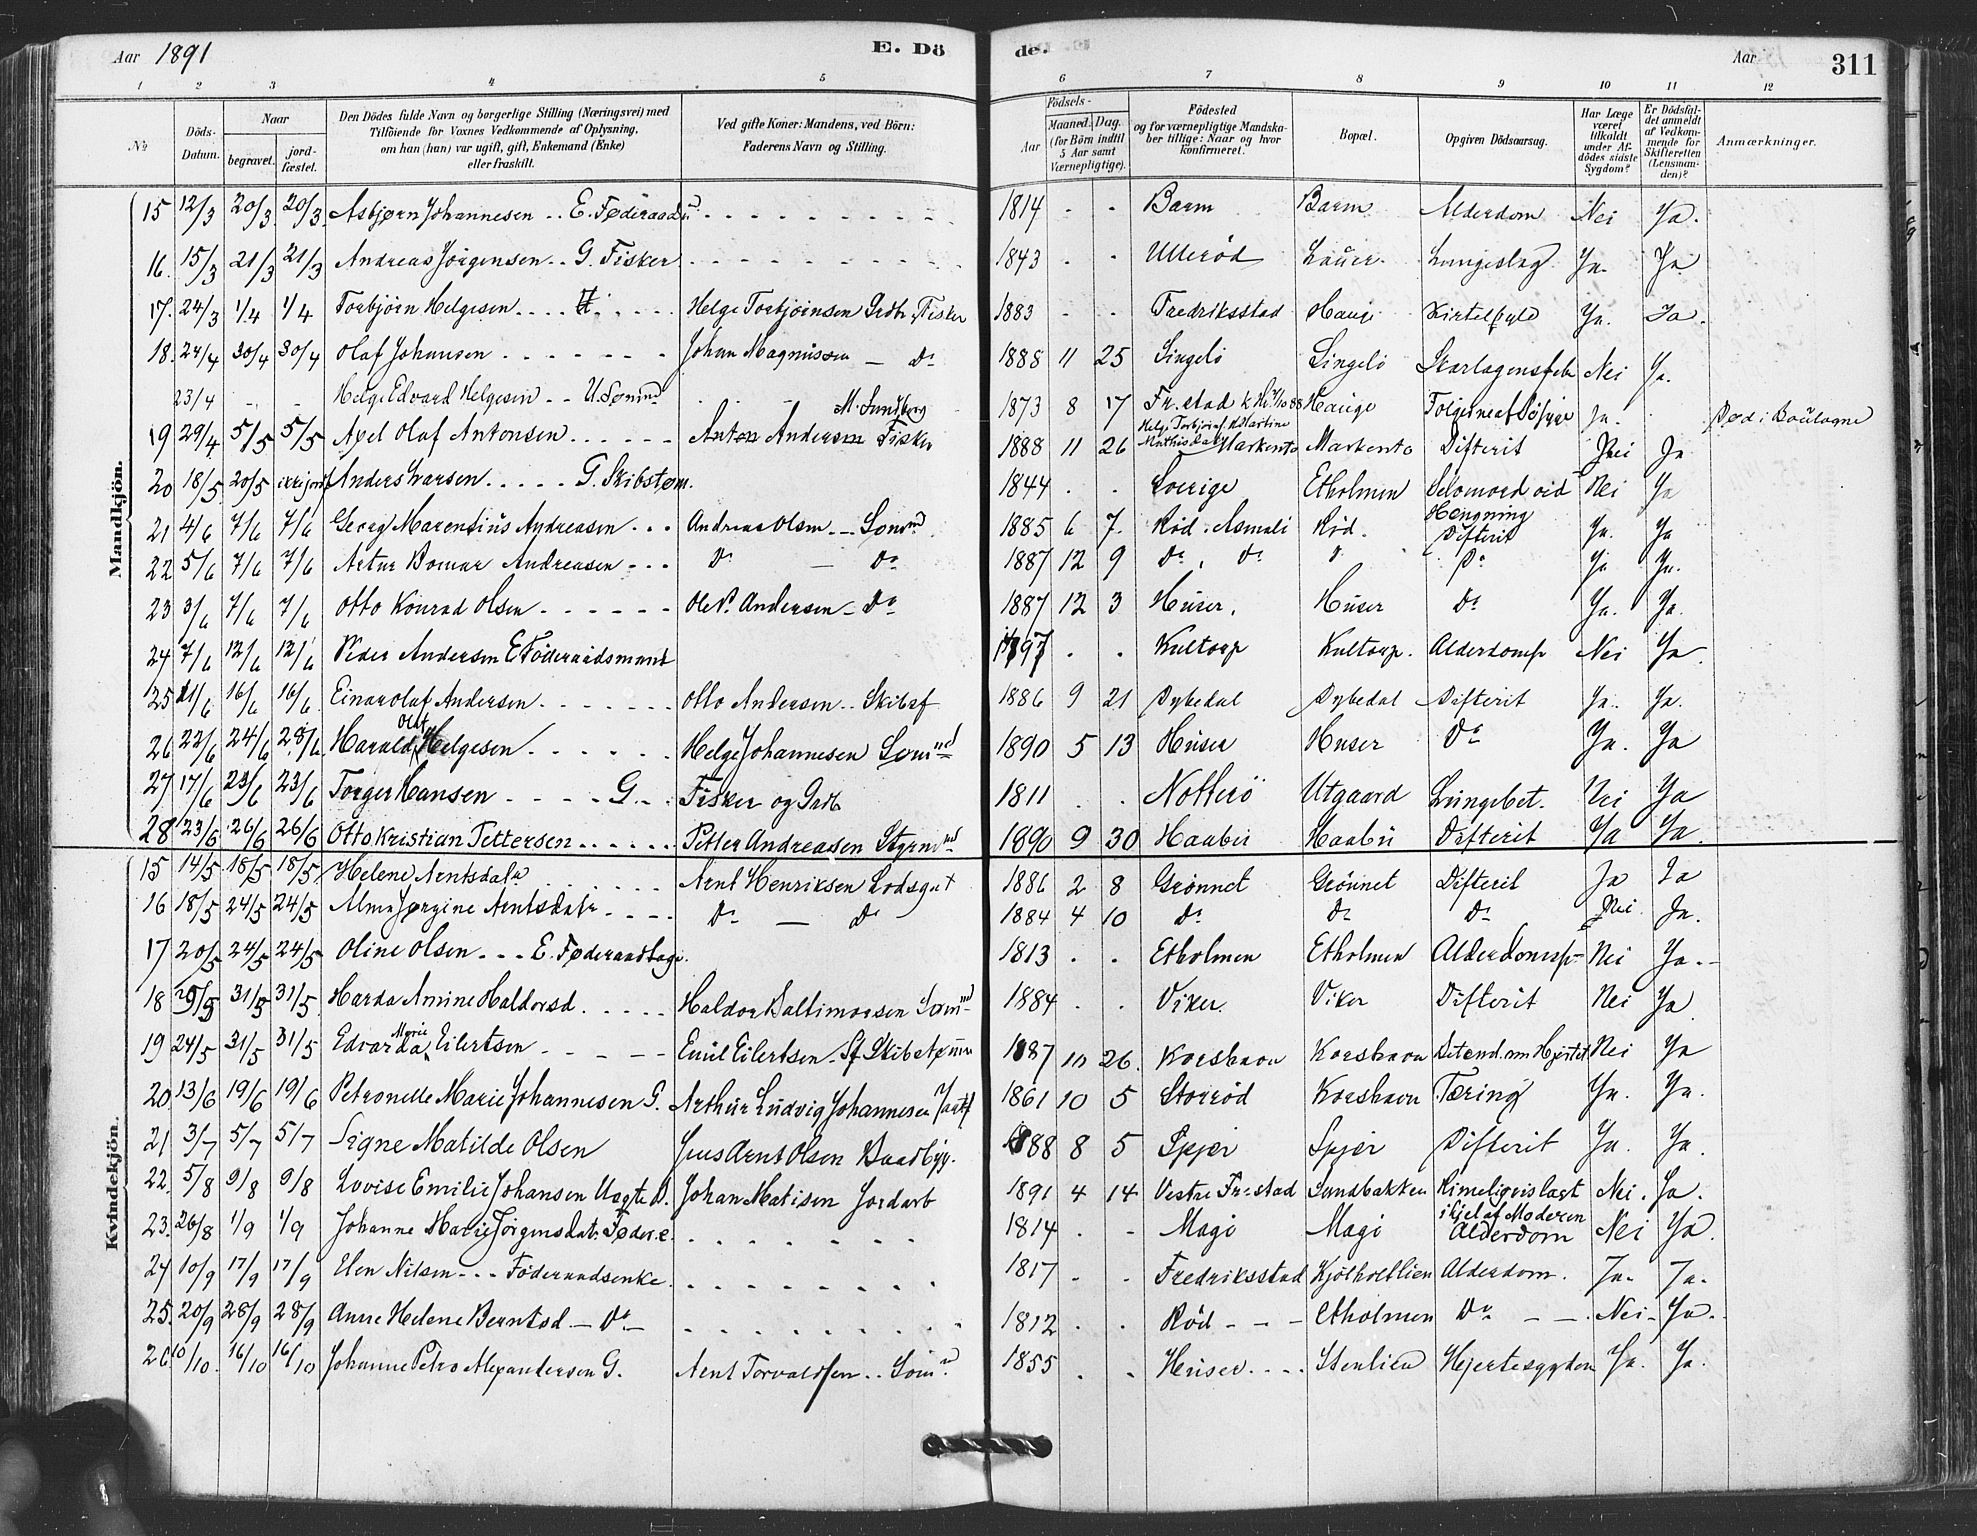 Aar 1891 E. Dö de. Aar 311
1 2 3 4 5 6 7 8 9 10 11 12
№ Döds-Datum. Naar begravet. jord-fæstet. Den Dödes fulde Navn og borgerlige Stilling (Næringsvei) med Tilföiende for Voxnes Vedkommende af Oplysning, om han (hun) var ugift, gift, Enkemand (Enke) eller fraskilt. Ved gifte Koner: Mandens, ved Börn: Faderens Navn og Stilling. Födsels- Aar Maaned. Dag. (for Börn indtil 5 Aar samt Værnepligtige). Födested og for værnepligtige Mandska-ber tillige: Naar og hvor konfirmeret. Bopæl. Opgiven Dödsaarsag. Har Læge været tilkaldt under Af-dödes sidste Sygdom? Er Dödsfal-det anmeldt af Vedkom-mende for Skifteretten (Lensman-den)? Anmærkninger.
Mandkjön.
15 12/3 20/3 20/3 Asbjørn Johannesen .. E. Føderaad 1814 Barm Barm Alderdom Nei Ja.
16. 15/3 21/3 21/3 Andreas Jörgensen .. G. Fisker 1843 Ullerød Lauer Lungeslag Ja. Ja
17. 24/3 1/4 1/4 Torbjörn Helgesen Helge Torbjörnsen Grdb. Fisker 1883 Fredriksstad Hauge Kirtelsyge Ja. Ja.
18. 24/4 30/4 30/4 Olaf Johansen Johan Magnussen — Do 1888 11 25 Singelö Singelö Skarlagensfebe Nei Ja.
23/4 - - Helge Edvard Helgesen .. U. Sömd 1873 8 17 Fr.stad Hauge Ja. Død i Boulogne
19 29/4 5/5 5/5 Axel Olaf Antonsen Anton Andersen Fisker M. Sundberg 1888 11 26 Markento Markento Difterit Nei Ja
20 18/5 20/5 ikke jordf Anders Ivarsen G. Skibstøm. 1844 Sverige Etholmen Selvmord ved Hengning Nei Ja
21 4/6 7/6 7/6 Georg Marensius Andreasen Andreas Olsen -- Sömd 1885 6 7. Rød. Asmalö Rød. Difterit Ja. Ja
22 5/6 7/6 7/6 Artur Bomar Andreasen Do — Do 1887 12 9 Do. Do Do Ja Ja.
23 3/6 7/6 7/6 Otto Konrad Olsen Ole P. Andersen - Do 1887 12 3 Huser. Huser Do Ja. Ja.
24 7/6 12/6 12/6 Peder Andersen E Föderaadsmand 1797 Kultorp Kultorp. Alderdomsv Nei Ja.
25 11/6 16/6 16/6 Einar Olaf Andersen Otto Andersen .. Skibsf 1886 9 21 Dybedal Dybedal Difterit Ja. Ja.
26 22/6 24/6 28/6 Harald Olaf Helgesen Helge Johannesen Sömnd 1890 5 13 Huser Huser Do Ja. Ja
27 17/6 23/6 23/6 Torger Hansen G. Fisker og Grdb 1811 Nötterö Utgaard Lungebet. Nei Ja
28 23/6 26/6 26/6 Otto Kristian Pettersen Petter Andreassen Styrmd 1890 9 30 Haabu Haabu Difterit Ja Ja.
Kvindekjön.
15 14/5 18/5 18/5 Helene Arntsdatr Arnt Henriksen Lodsgut 1886 2 8 Grønnet Grönnet Difterit Ja Ja
16 18/5 24/5 24/5 Alma Jørgine Arntsdatr Do — Do 1884 4 10 Do Do Do Nei Ja.
17 20/5 24/5 24/5 Oline Olsen E. Føderaadtage. 1813 Etholmen Etholmen Alderdomssv Nei Ja.
18 29/5 31/5 31/5 Harda Amine Haldorsd. Haldor Baltimorsen Sømnd 1884 Viker. Viker Difterit Nei Ja
19 24/5 31/5 31/5 Edvarda Marie Eilertsen Emil Eilertsen 1887 10 26. Korshavn Korshavn Nei Ja
20 13/6 19/6 19/6 Petronelle Marie Johannesen G. Arthur Ludvig Johannesen 1861 10 5 Storrød Korshavn Tæring Ja. Ja.
21 3/7 5/7 5/7 Signe Matilde Olsen Jens Arnt Olsen Baadbyg. 1888 8 5 Spjær Spjær Difterit Ja. Ja.
22. 5/8 9/8 9/8 Lovise Emilie Johansen Uægte B. Johan Matisen Jordarb 1891 4 14 Vestre Fr.stad Sandbakken Rimeligvis lagt ihjel af Moderen Nei. Ja.
23. 26/8 1/9 1/9 Johanne Marie Jörgensdatr. Føder.e. 1814 Magö Magö Alderdom Nei Ja.
24 10/9 17/9 17/9 Elen Nilsen --- Föderaadsenke. 1817 Fredriksstad Kjölholtlien Alderdom. Ja. Ja.
25. 20/9 28/9 28/9 Anne Helene Berntsd — Do — 1812 Rød Etholmen Do Nei Ja.
26 10/10. 16/10 16/10 Johanne Petra Alexandersen G. Arnt Torvaldsen .. Sömd 1855 Huser Stenlien Hjertesygdom Ja. Ja.